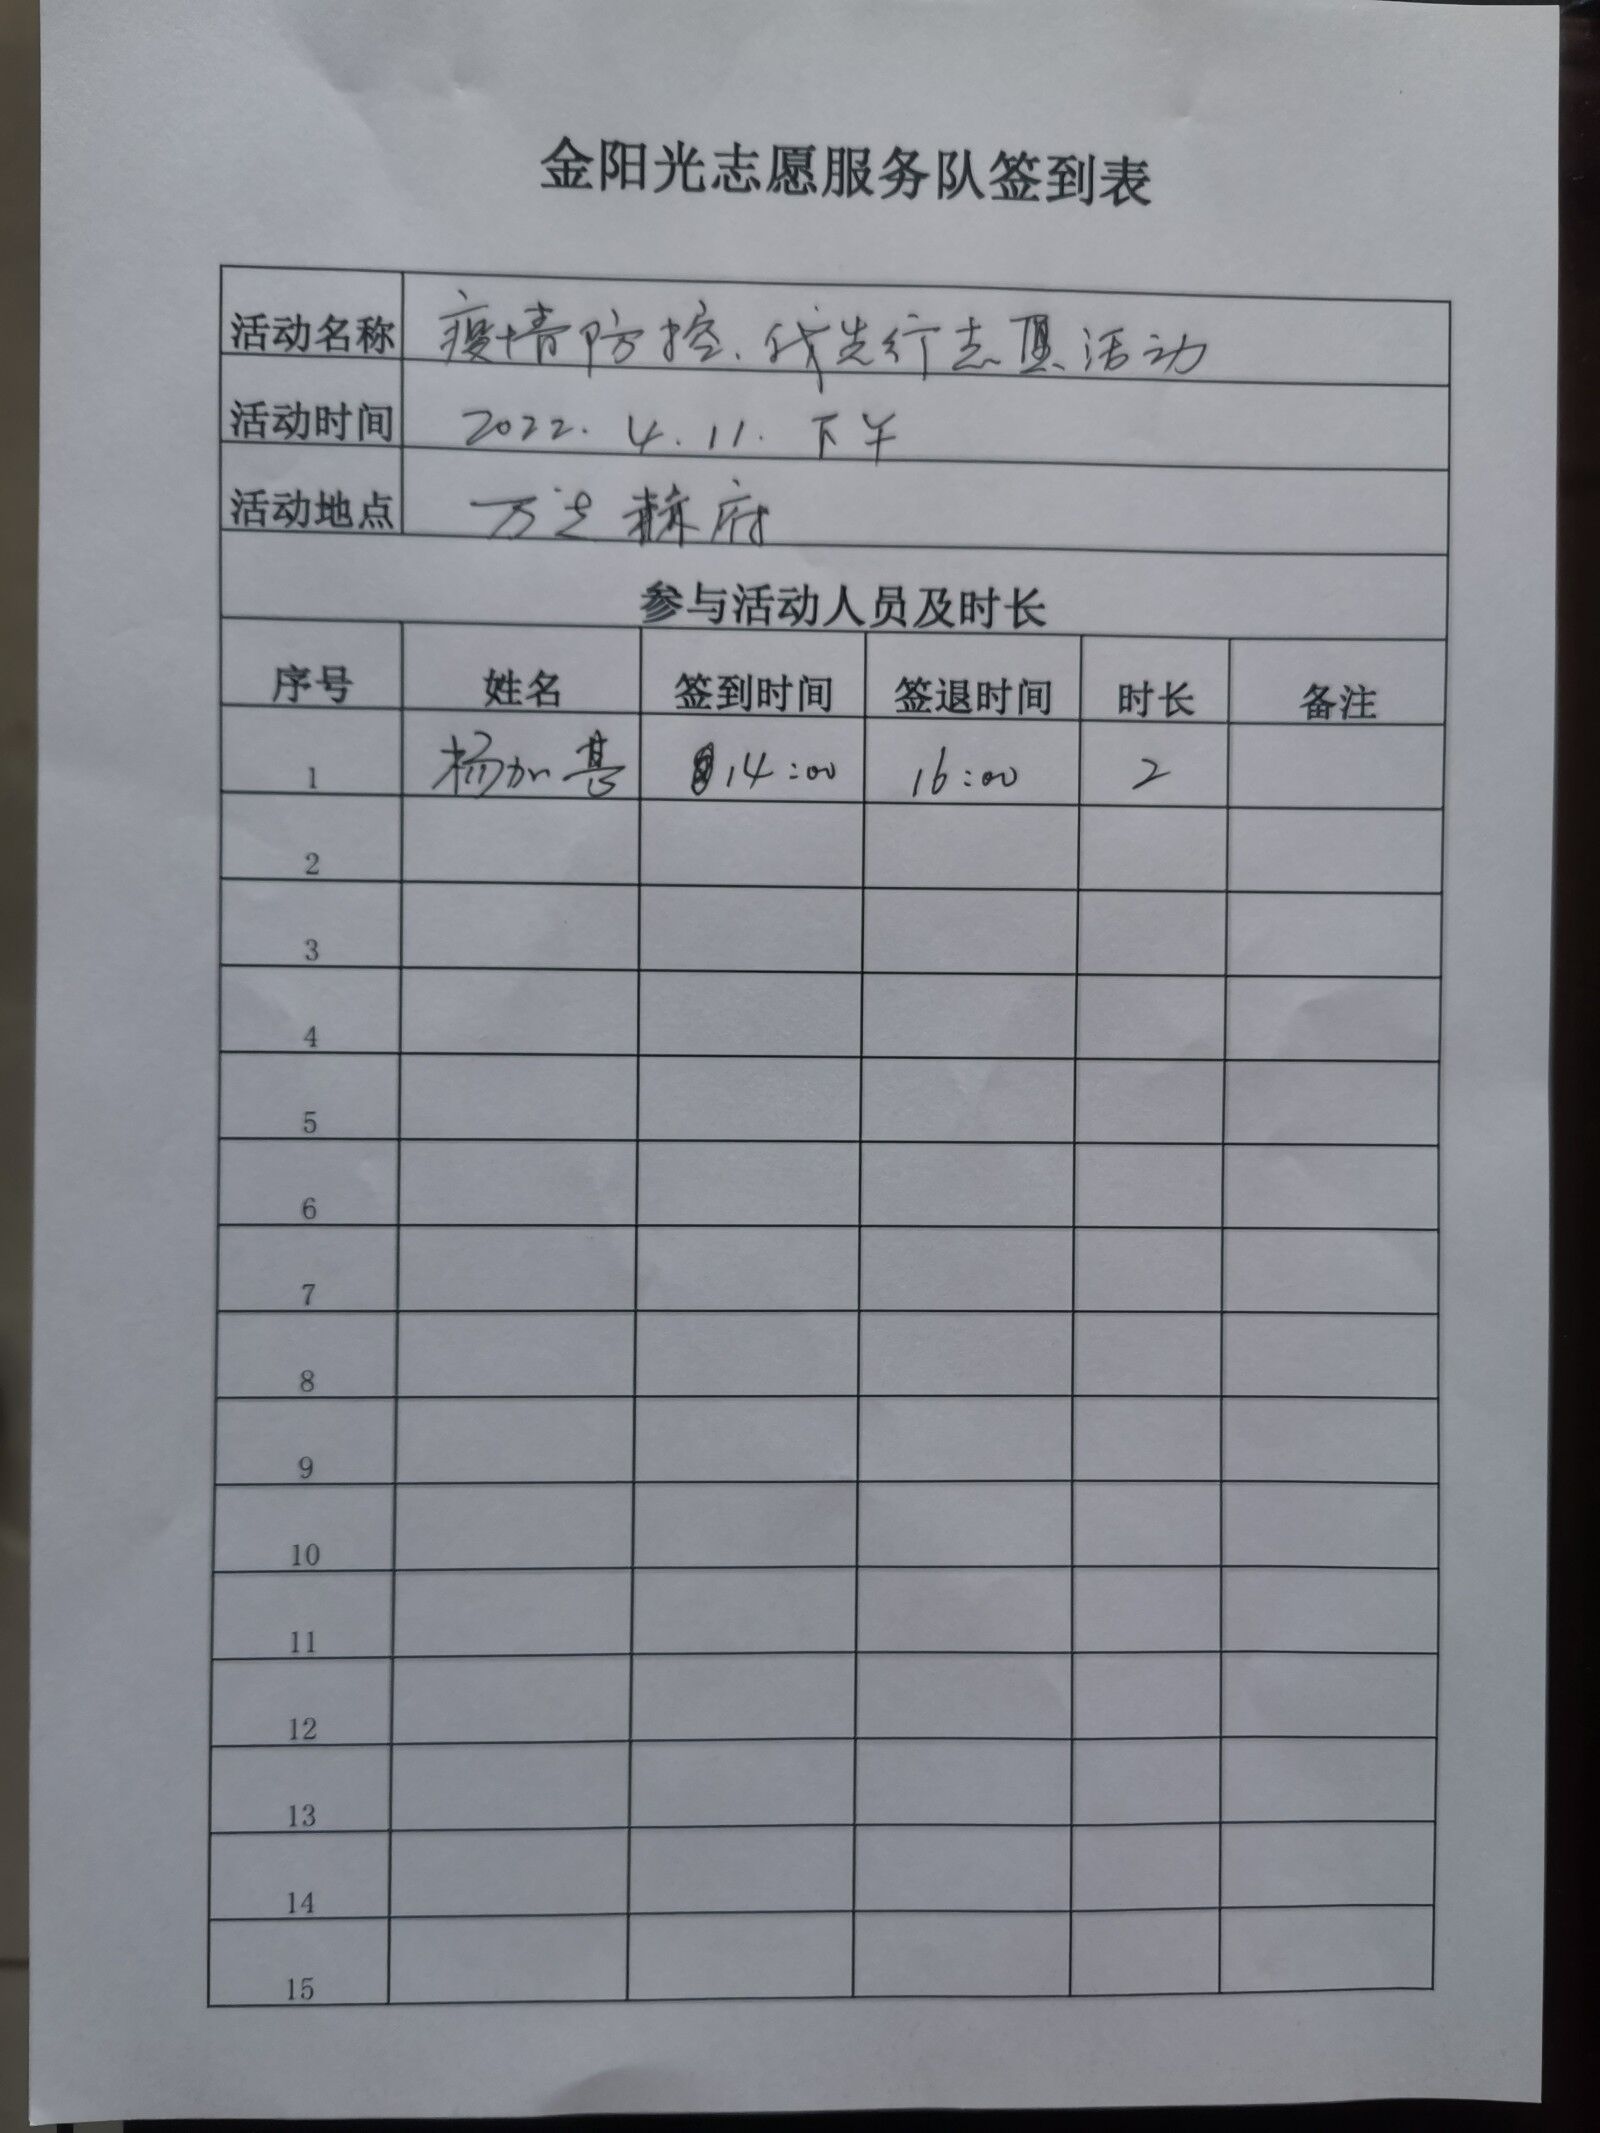 金阳光志愿服务队签到表
活动名称 疫情防控、我先行志愿活动
活动时间 2022.4.11.下午
活动地点 万 府
参与活动人员及时长
序号 姓名 签到时间 签退时间 时长 备注
1 杨加 14:00 16:00 2
2
3
4
5
6
7
8
9
10
11
12
13
14
15